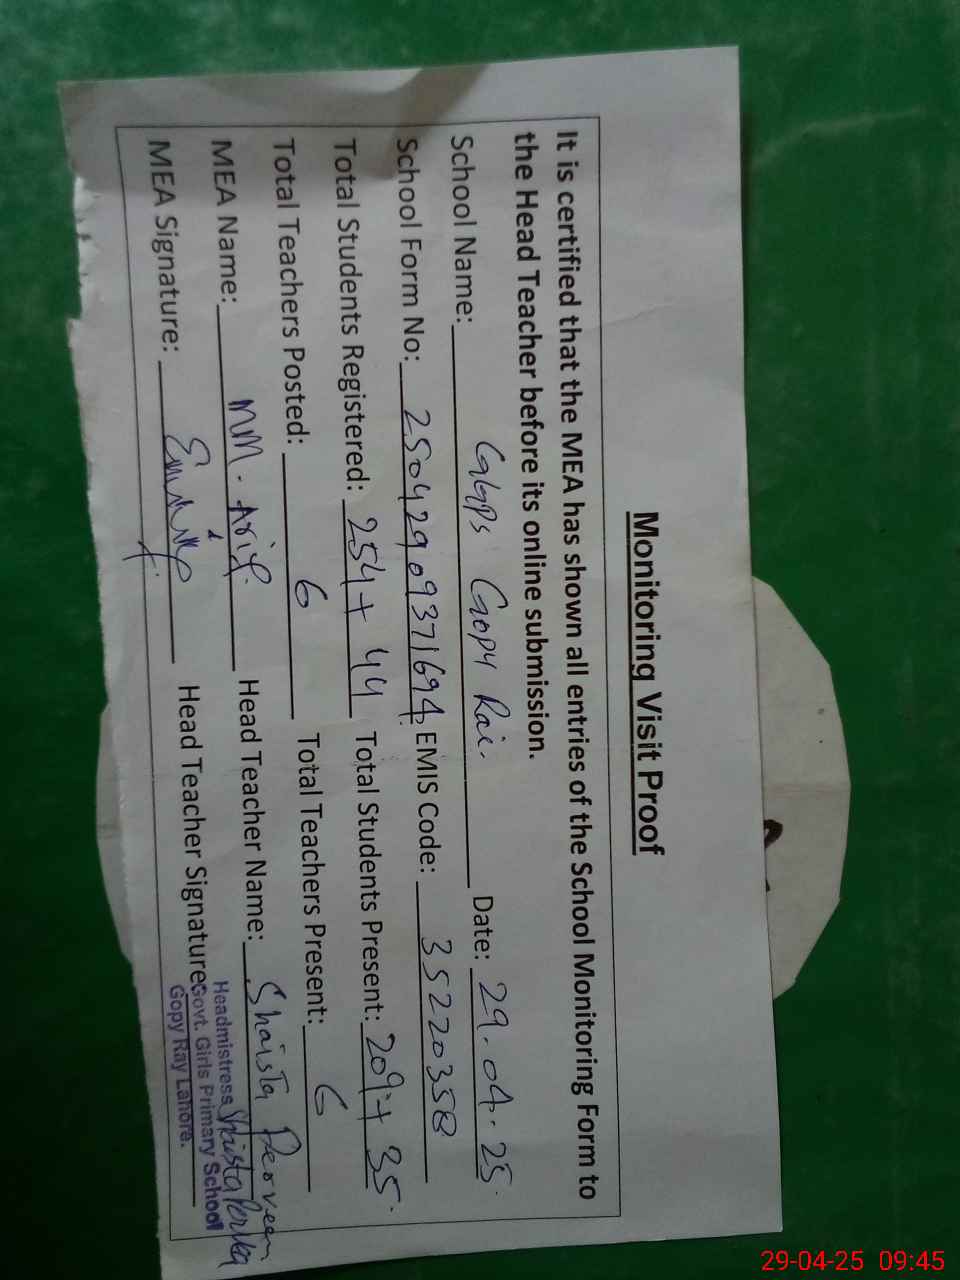 Monitoring Visit Proof
It is certified that the MEA has shown all entries of the School Monitoring Form to
the Head Teacher before its online submission.
School Name: GGPS Gopy Rai. Date: 29.04.25.
School Form No: 25042909371694 EMIS Code: 35220358
Total Students Registered: 254+44 Total Students Present: 209+35.
Total Teachers Posted: 6 Total Teachers Present: 6
MEA Name: MM. Arif Head Teacher Name: Shaista Perveen
MEA Signature: Head Teacher Signature:
Headmistress
Govt. Girls Primary School
Gopy Ray Lahore.
29-04-25 09:45